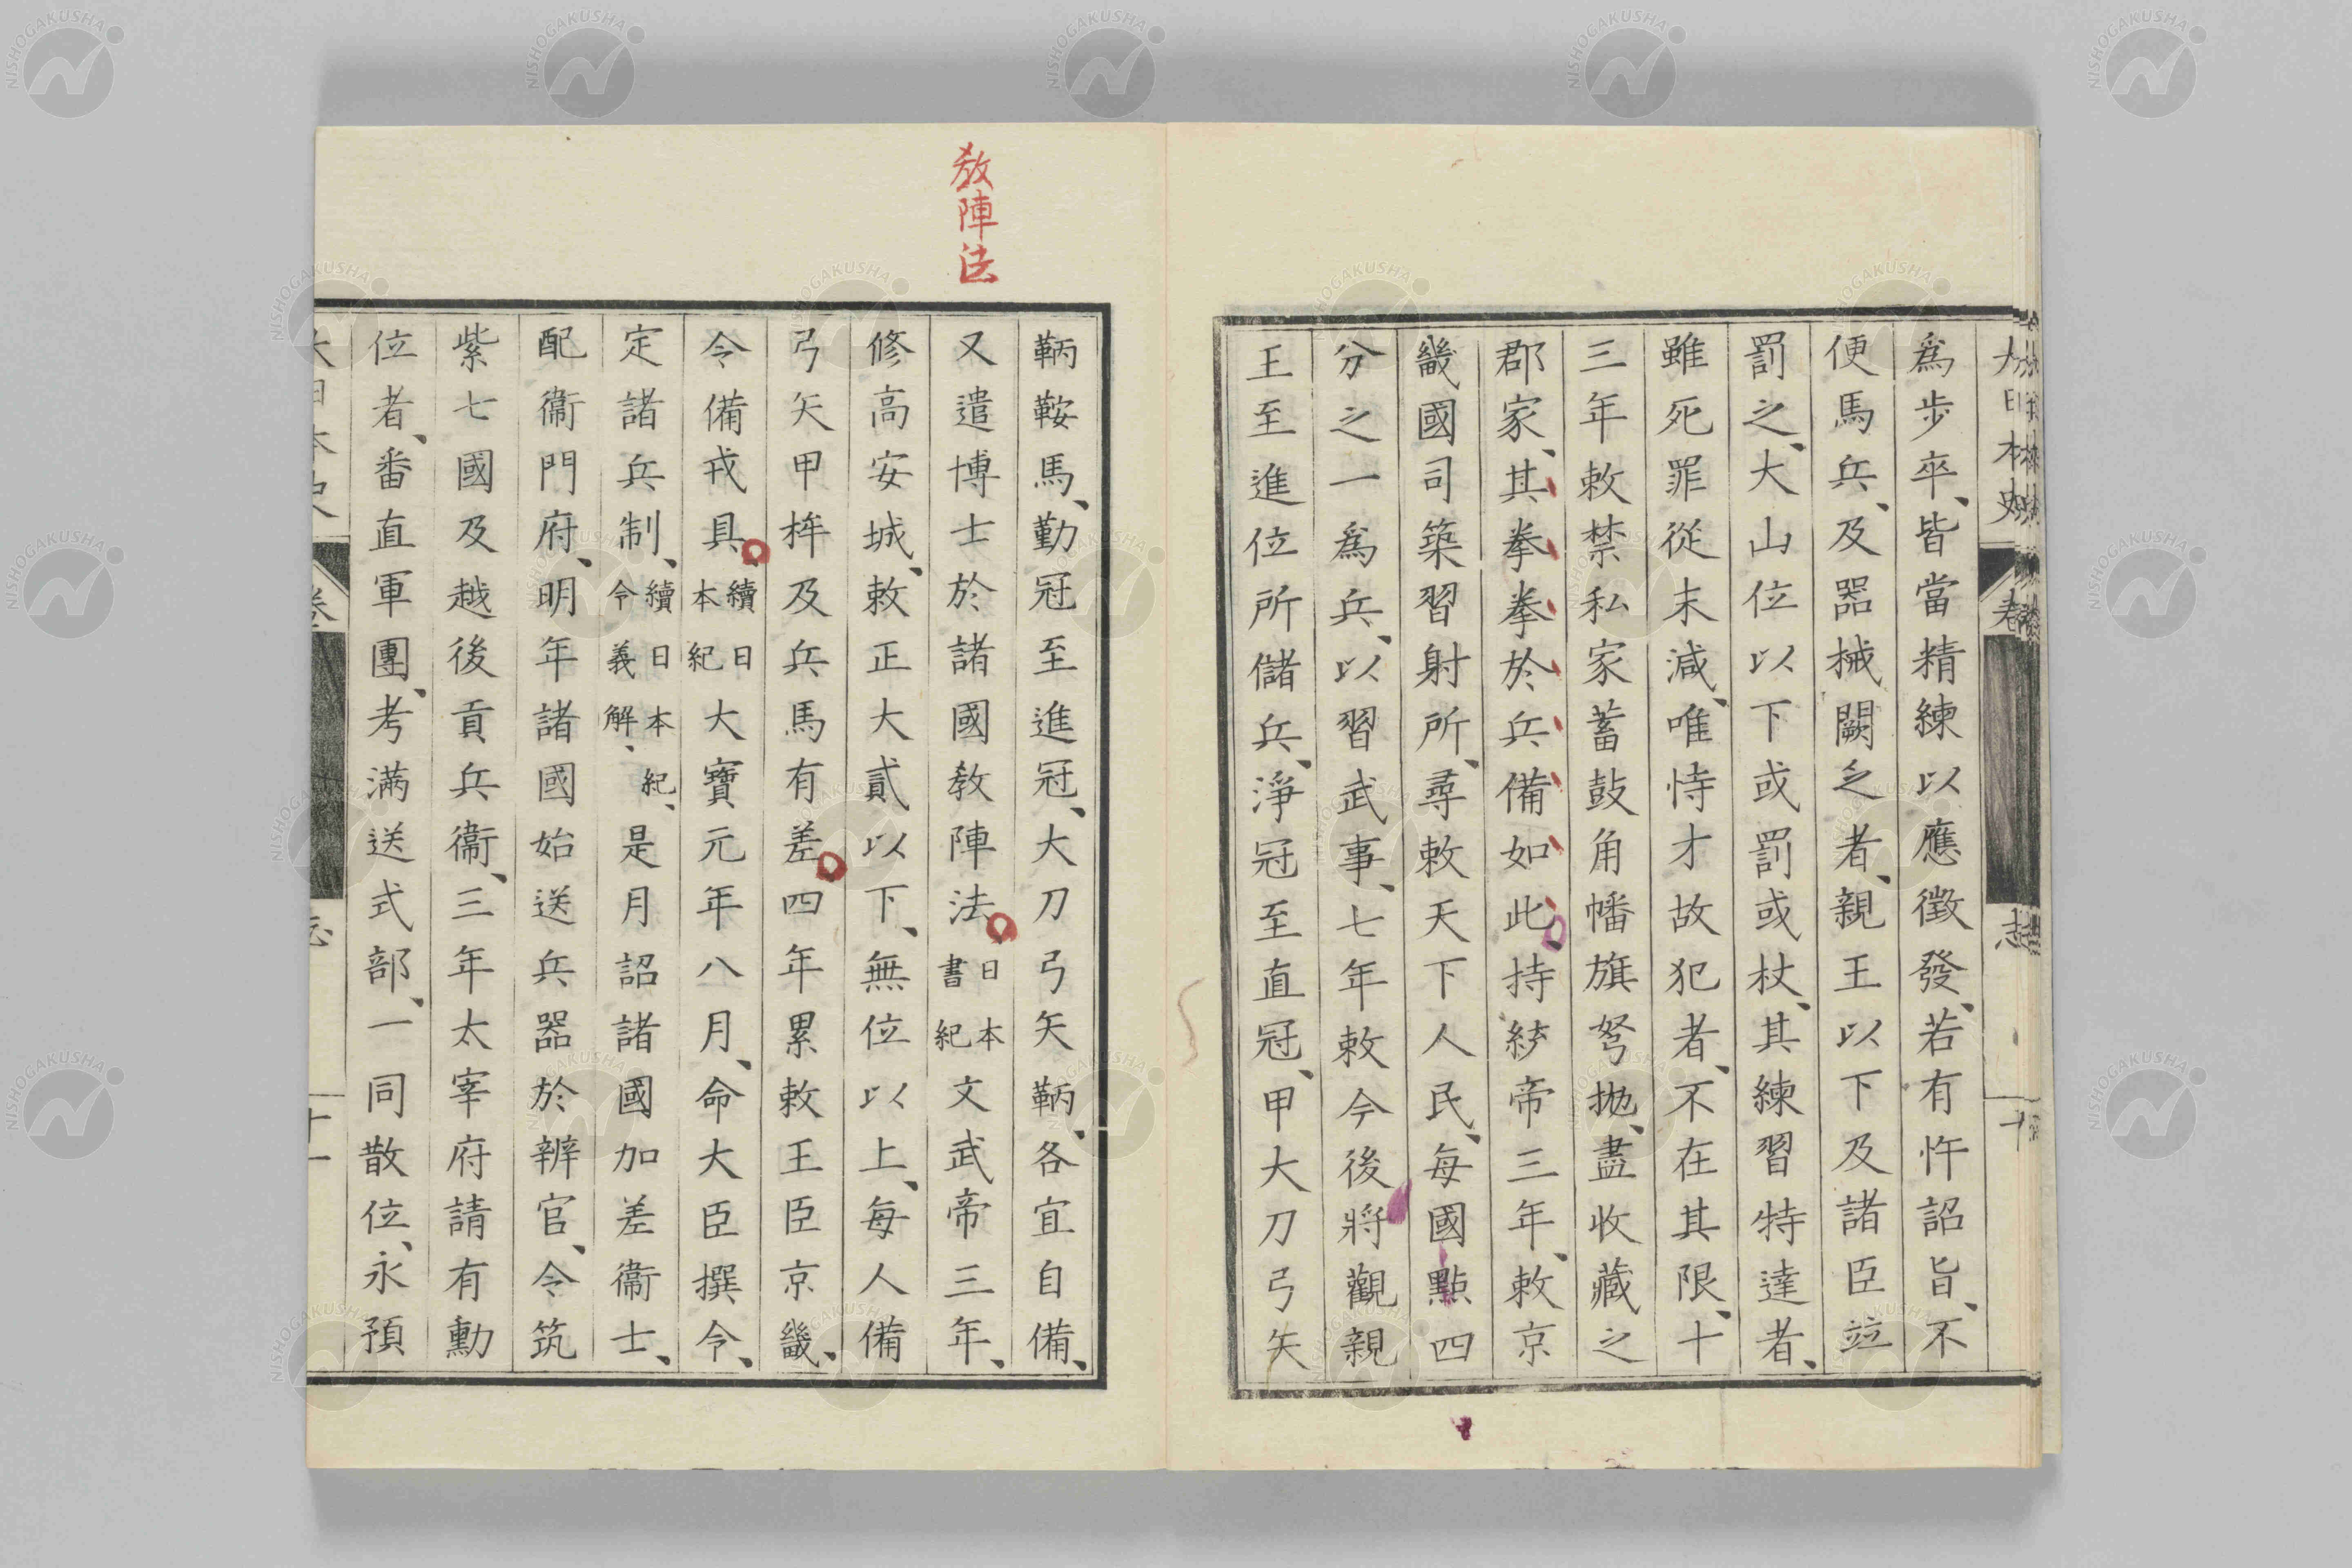 大日本史
志
十
爲步卒、皆當精練以應徵發、若有忤詔旨、不
便馬兵、及器械闕乏者、親王以下及諸臣竝
罰之、大山位以下或罰或杖、其練習特達者、
雖死罪從末減、唯恃才故犯者、不在其限、十
三年敕禁私家蓄鼓角幡旗弩抛、盡收藏之
郡家、其拳拳於兵備如此、持統帝三年、敕京
畿國司築習射所、尋敕天下人民、每國點四
分之一爲兵、以習武事、七年敕今後將觀親
王至進位所儲兵、淨冠至直冠、甲大刀弓矢
教陣法
鞆鞍馬、勤冠至進冠、大刀弓矢鞆、各宜自備、
又遣博士於諸國教陣法、日本書紀文武帝三年、
修高安城、敕正大貳以下、無位以上、每人備
弓矢甲桙及兵馬有差、四年累敕王臣京畿、
令備戎具、續日本紀大寶元年八月、命大臣撰令、
定諸兵制、續日本紀、令義解、是月詔諸國加差衞士、
配衞門府、明年諸國始送兵器於辨官、令筑
紫七國及越後貢兵衞、三年太宰府請有勳
位者、番直軍團、考滿送式部、一同散位、永預
大日本史
卷
志
十一
NISHOGAKUSHA